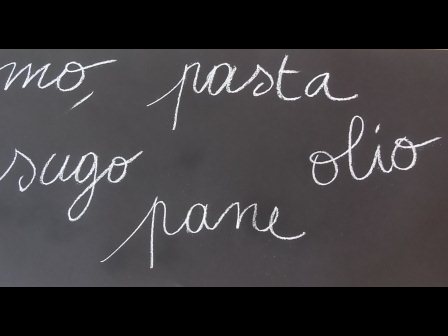 mò, pasta
sugo olio
pane